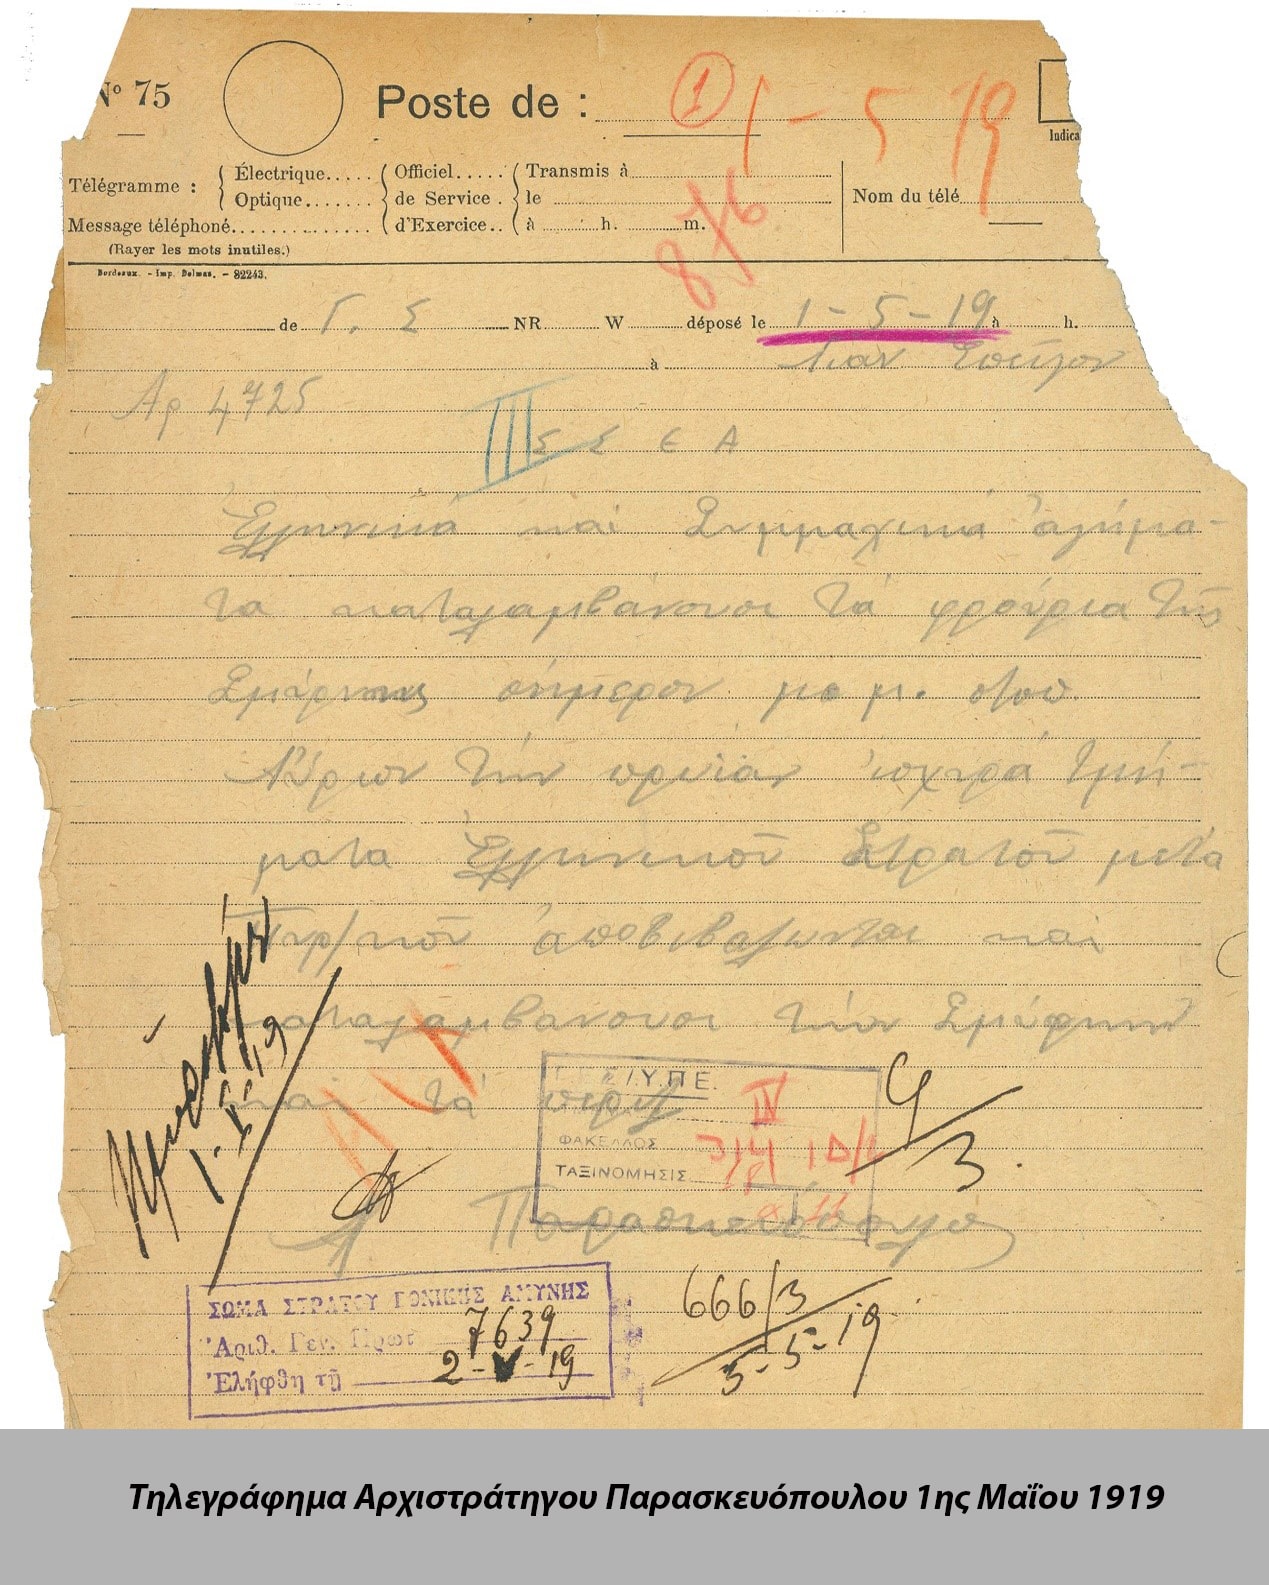 Nº 75
Poste de :
1
1 - 5 19
Indica
Télégramme :
Électrique.....
Optique.......
Officiel.....
de Service .
d'Exercice..
Transmis à
le
à h. m.
Nom du télé
Message téléphoné
(Rayer les mots inutiles.)
876
Bordeaux. - Imp. Delmas. - 82243.
de Γ. Σ NR W déposé le 1-5-19 à h.
à Λίαν Ἐπεῖγον
Αρ 4725
III
Σ Σ Ε Α
Ἑλληνικά καί Συμμαχικά ἀγήμα-
τα καταλαμβάνουσι τά φρούρια τῆς
Σμύρνης σήμερον μ.μ.
Αὔριον τήν πρωίαν ἰσχυρά τμή-
ματα Ἑλληνικοῦ Στρατοῦ μετά
Πυρ/κοῦ ἀποβιβάζονται καί
καταλαμβάνουσι τήν Σμύρνην
καί τά πέριξ
1-5-19
Γ.Ε.Σ/Υ.ΠΕ.
IV
ΦΑΚΕΛΛΟΣ
ΤΑΞΙΝΟΜΗΣΙΣ
3
Παρασκευόπουλος
ΣΩΜΑ ΣΤΡΑΤΟΥ ΕΘΝΙΚΗΣ ΑΜΥΝΗΣ
Ἀριθ. Γεν. Πρωτ 7639
Ἐλήφθη τῇ 2-V-19
666/3
3-5-19
Τηλεγράφημα Αρχιστράτηγου Παρασκευόπουλου 1ης Μαΐου 1919